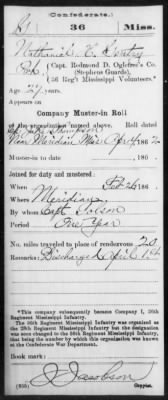 (Confederate.)
36 Miss.
Nathaniel
Pvt, (Capt. Redmond D. Oglefree's Co.
(Stephens Guards),
36 Reg't Mississippi Volunteers.*
Age 29 years.
Appears on
Company Muster-in Roll
of the organization named above. Roll dated
Near Meridian Miss Apr 4, 1862
Muster-in to date , 186 .
Joined for duty and mustered:
When Feb 26, 186 .
Where Meridian
By whom Capt
Period One Year
No. miles traveled to place of rendezvous 20
Remarks: Discharged April 1st
*This company subsequently became Company I, 36th
Regiment Mississippi Infantry.
The 36th Regiment Mississippi Infantry was organized as
the Regiment Mississippi Infantry but the designation
was soon changed to the 36th Regiment Mississippi Infantry,
that being the number by which this organization was
known at the Confederate War Department.
Book mark:
J. Jacobson
Copyist.